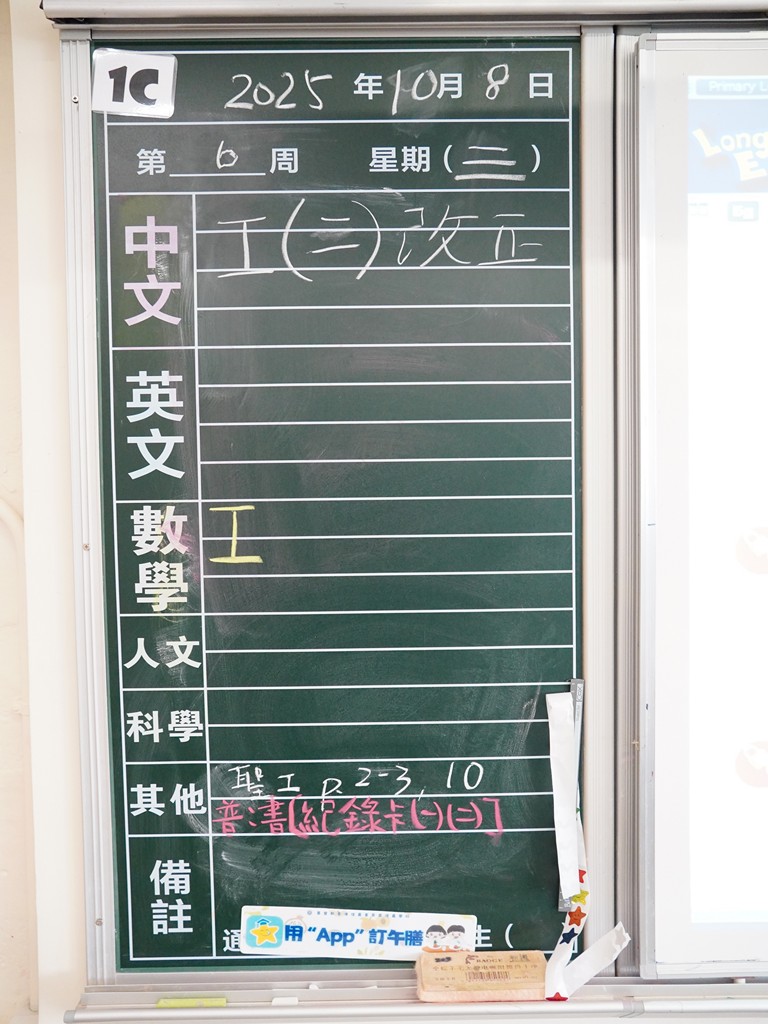 1C
2025 年 10 月 8 日
第 6 周 星期 (三)
中文 工(二)改正
英文
數學 工
人文
科學
其他 聖工 P.2-3, 10
普:書[紀錄卡(一)(二)]
備註
通
用 "App" 訂午膳
生 (
Primary L
Long
E